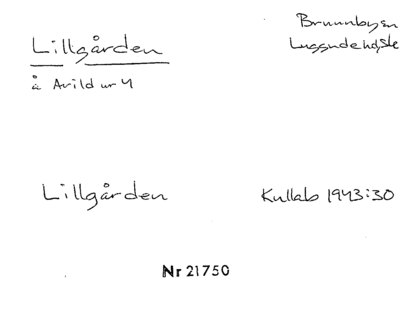 Lillgården
Brunnbyssn
Luggudehdsde
å Arild nr 4
Lillgården
Kullab 1943:30
Nr 21750